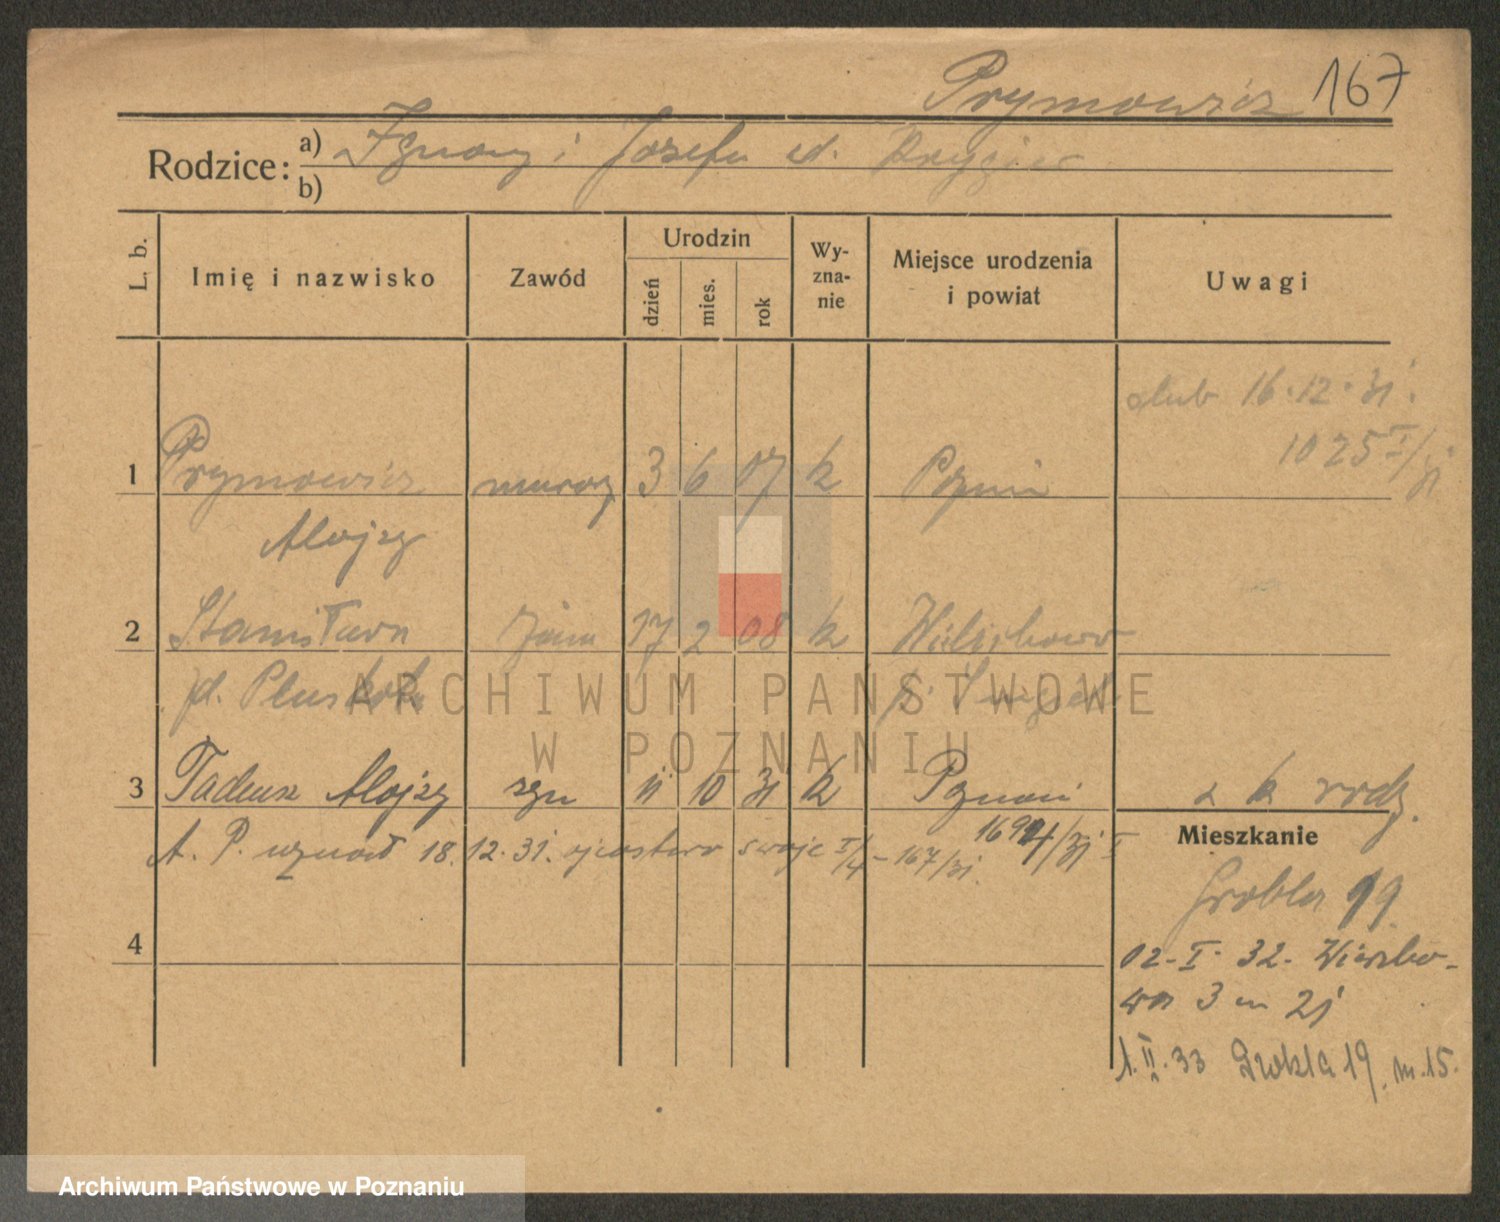 Prymowicz 167
Rodzice: a) Ignacy i Józefa d.
b)
L. b.
Imię i nazwisko
Zawód
Urodzin
dzień
mies.
rok
Wy-
zna-
nie
Miejsce urodzenia
i powiat
Uwagi
ślub 16.12.31.
1025 I/31
1 Prymowicz murarz 3 6 07 k Poznań
Alojzy
2 Stanisława żona 17 2 08 k
d.
ARCHIWUM PAŃSTWOWE
W POZNANIU
3 Tadeusz Alojzy syn 11 10 31 k Poznań k rodz.
A. P. uznał 18.12.31. ojcostwo swoje I/4-167/31.
Mieszkanie
Grobla 19
4
02-I-32. Wierzbo-
wa 3 m 21
1.II.33 Grobla 19. m.15.
Archiwum Państwowe w Poznaniu